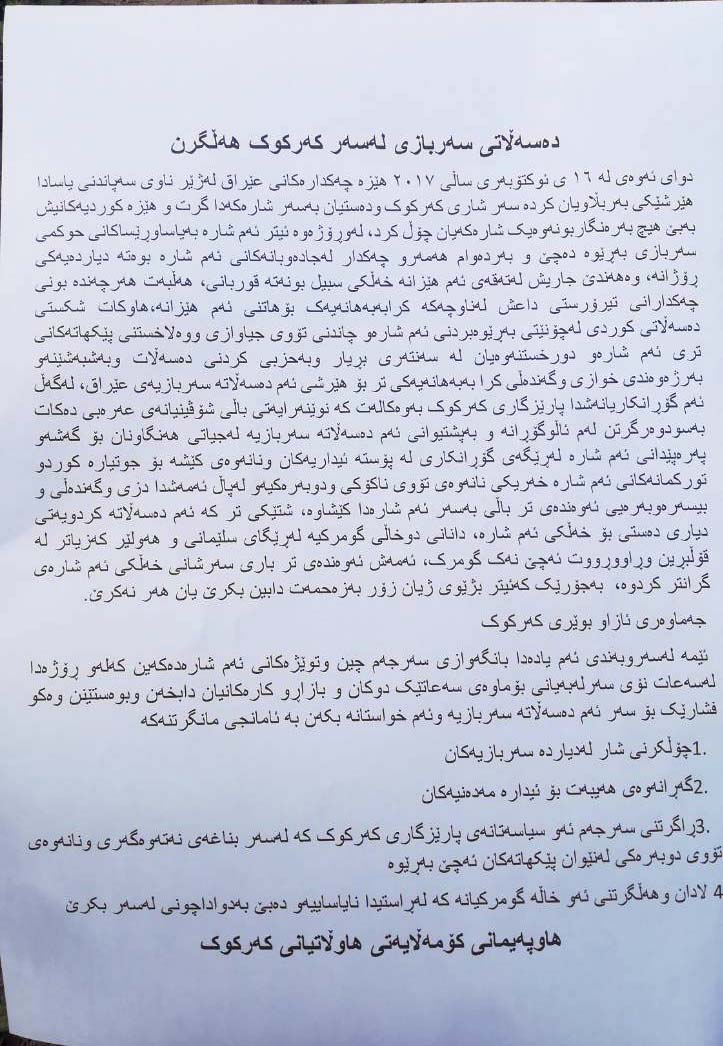 دەسەڵاتی سەربازی لەسەر کەرکوک هەڵگرن
دوای ئەوەی لە ١٦ ی ئوکتۆبەری ساڵی ٢٠١٧ هێزە چەکدارەکانی عێراق لەژێر ناوی سەپاندنی یاسادا
هێرشێکی بەربڵاویان کردە سەر شاری کەرکوک ودەستیان بەسەر شارەکەدا گرت و هێزە کوردیەکانیش
بەبێ هیچ بەرەنگاربونەوەیک شارەکەیان چۆل کرد، لەورۆژەوە ئیتر ئەم شارە بەیاساورێساکانی حوکمی
سەربازی بەرێوە دەچێ و بەردەوام هەمەرو چەکدار لەجادەوبانەکانی ئەم شارە بوەتە دیاردەیەکی
رۆژانە، وەهەندێ جاریش لەتەقەی ئەم هێزانە خەڵکی سبیل بونەتە قوربانی، هەڵبەت هەرچەندە بونی
چەکدارانی تیرۆرستی داعش لەناوچەکە کرابەبەهانەیەک بۆهاتنی ئەم هێزانە،هاوکات شکستی
دەسەڵاتی کوردی لەچۆنێتی بەرێوەبردنی ئەم شارەو چاندنی تۆوی جیاوازی ووەلاخستنی پێکهاتەکانی
تری ئەم شارەو دورخستنەوەیان لە سەنتەری بریار وبەحزبی کردنی دەسەڵات وبەشبەشێنەو
بەرژەوەندی خوازی وگەندەڵی کرا بەبەهانەیەکی تر بۆ هێرشی ئەم دەسەڵاتە سەربازیەی عێراق، لەگەڵ
ئەم گۆرانکاریانەشدا پارێزگاری کەرکوک بەوەکالەت کە نوێنەرایەتی باڵی شۆڤینیانەی عەرەبی دەکات
بەسودوەرگرتن لەم ئاڵوگۆرانە و بەپشتیوانی ئەم دەسەڵاتە سەربازیە لەجیاتی هەنگاونان بۆ گەشەو
پەرەپێدانی ئەم شارە لەرێگەی گۆرانکاری لە پۆستە ئیداریەکان ونانەوەی کێشە بۆ جوتیارە کوردو
تورکمانەکانی ئەم شارە خەریکی نانەوەی تۆوی ناکۆکی ودوبەرەکیەو لەپاڵ ئەمەشدا دزی وگەندەڵی و
بیسەرەوبەرەیی ئەوەندەی تر باڵی بەسەر ئەم شارەدا کێشاوە، شتێکی تر کە ئەم دەسەڵاتە کردویەتی
دیاری دەستی بۆ خەڵکی ئەم شارە، دانانی دوخاڵی گومرکیە لەرێگای سلێمانی و هەولێر کەزیاتر لە
قۆڵبرین وراوورووت ئەچێ نەک گومرک، ئەمەش ئەوەندەی تر باری سەرشانی خەڵکی ئەم شارەی
گرانتر کردوە، بەجۆرێک کەئیتر بژێوی ژیان زۆر بەزەحمەت دابین بکرێ یان هەر نەکرێ.
جەماوەری ئازاو بوێری کەرکوک
ئێمە لەسەروبەندی ئەم یادەدا بانگەوازی سەرجەم چین وتوێژەکانی ئەم شارەدەکەین کەلەو رۆژەدا
لەسەعات نۆی سەرلەبەیانی بۆماوەی سەعاتێک دوکان و بازارو کارەکانیان دابخەن وبوەستێنن وەکو
فشارێک بۆ سەر ئەم دەسەڵاتە سەربازیە وئەم خواستانە بکەن بە ئامانجی مانگرتنەکە
1.چۆلکرنی شار لەدیاردە سەربازیەکان
2.گەرانەوەی هەیبەت بۆ ئیدارە مەدەنیەکان
3.راگرتنی سەرجەم ئەو سیاسەتانەی پارێزگاری کەرکوک کە لەسەر بناغەی نەتەوەگەری ونانەوەی
تۆوی دوبەرەکی لەنێوان پێکهاتەکان ئەچێ بەرێوە
4 لادان وهەڵگرتنی ئەو خاڵە گومرکیانە کە لەراستیدا نایاساییەو دەبێ بەدواداچونی لەسەر بکرێ
هاوپەیمانی کۆمەڵایەتی هاوڵاتیانی کەرکوک